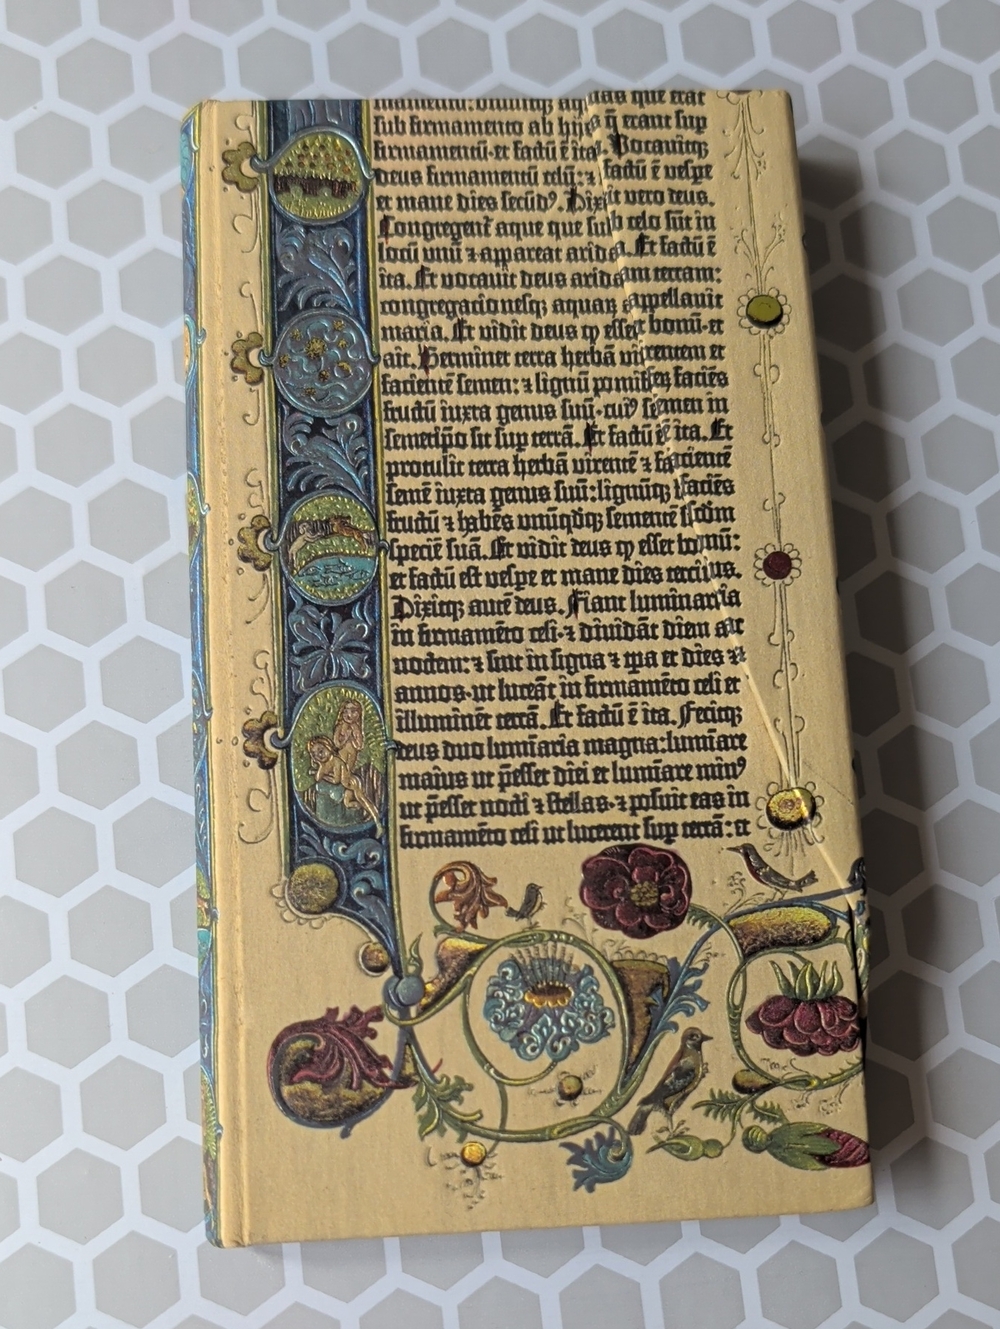 firmamentū: divisitqz aquas que erāt
sub firmamento ab hijs q̄ erant sup
firmamentū. et factū ē ita. Vocavitqz
deus firmamentū celū: ⁊ factū ē vespe
et mane dies secūdꝰ. Dixit vero deus.
Congregent̄ aque que sub celo sūt in
locū unū ⁊ appareat arida. Et factū ē
ita. Et vocavit deus aridam terram:
congregacionesqz aquaꝝ appellavit
maria. Et vidit deus ꝙ esset bonū. et
ait. Germinet terra herbā virentem et
facientē semen: ⁊ lignū pomiferꝝ faciēs
fructū iuxta genus suū. cuiꝰ semen in
semetip̄o sit sup terrā. Et factū ē ita. Et
protulit terra herbā virentē ⁊ facientē
semē iuxta genus suū: lignūqz faciēs
fructū ⁊ habēs unūqdqz sementē scdm
speciē suā. Et vidit deus ꝙ esset bonū:
et factū est vespe et mane dies tercius.
Dixitqz autē deus. Fiant luminaria
in firmamēto celi. ⁊ dividāt diem ac
noctem: ⁊ sint in signa ⁊ tp̄a et dies ⁊
annos. ut luceāt in firmamēto celi et
illuminēt terrā. Et factū ē ita. Fecitqz
deus duo lumīaria magna: lumīare
maius ut p̄esset diei et lumīare minꝰ
ut p̄esset nocti ⁊ stellas. ⁊ posuit eas in
firmamēto celi ut lucerent sup terrā: et